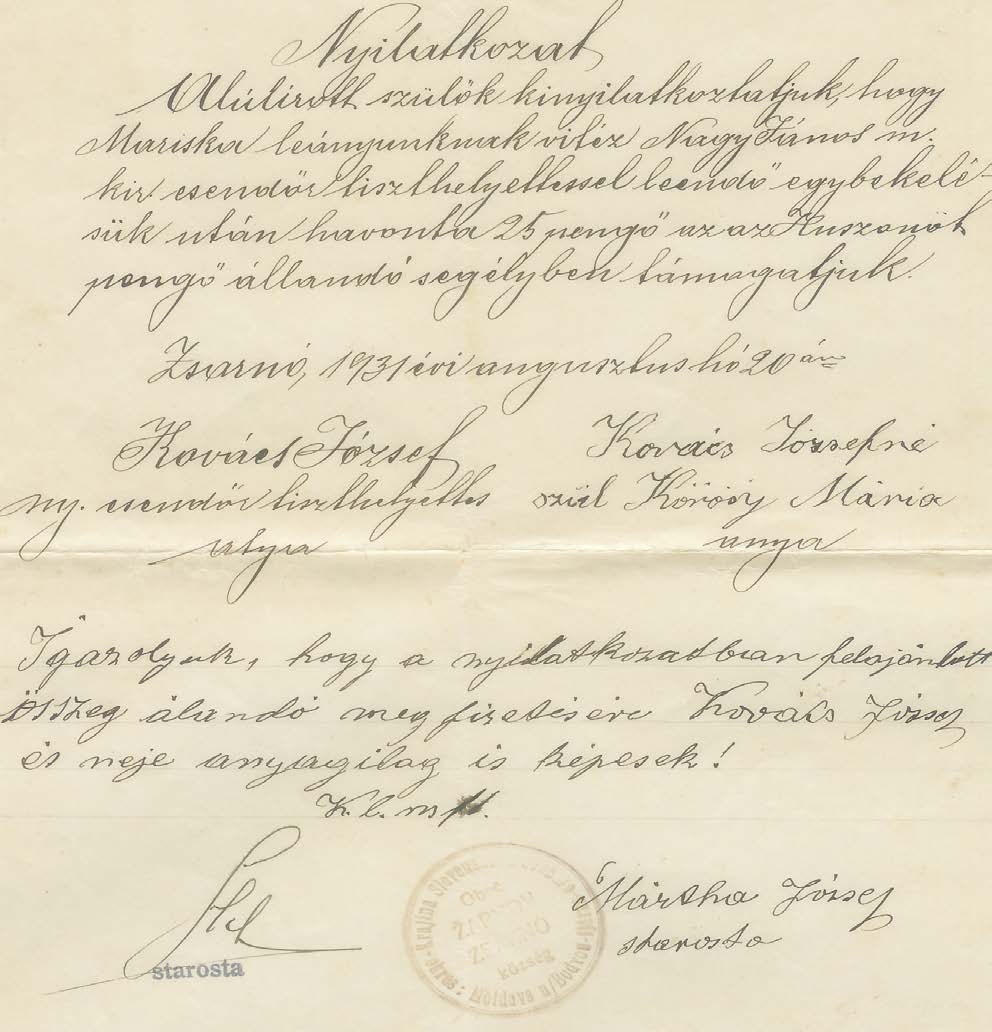 Nyilatkozat
Alúlirott szülők kinyilatkoztatjuk, hogy
Mariska leányunknak vitéz Nagy János m.
kir. csendőr tiszthelyettessel leendő egybekelé-
sük után havonta 25 pengő az az Huszonöt
pengő állandó segélyben támogatjuk.
Zsarnó, 1931 évi augusztus hó 20 án
Kovács József
ny. csendőr tiszthelyettes
atyja
Kovács Józsefné
szül Kőrösy Mária
anya
Igazolyuk, hogy a nyilatkozatban felajánlott
összeg álandó meg fizetésére Kovács József
és neje anyagilag is képesek!
K. l. mft.
starosta
Obec
ŽARNOV
ZSARNÓ
község
okres: Moldava n/Bodvou
Krajina Slovenská
Mártha József
starosta